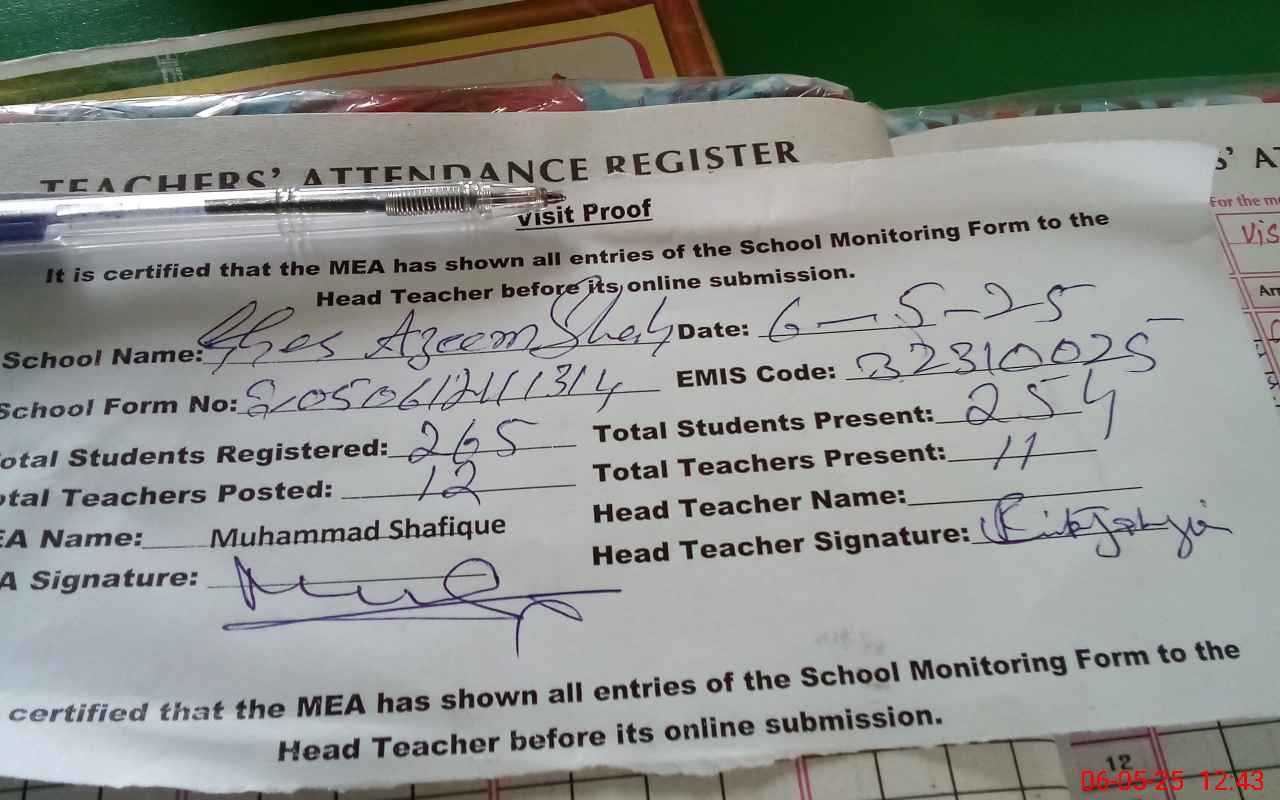 TEACHERS' ATTENDANCE REGISTER
S' AT
Visit Proof
For the mo
Vis
It is certified that the MEA has shown all entries of the School Monitoring Form to the
Head Teacher before its online submission.
School Name: Ghes Azeem Shah Date: 6-5-25
School Form No: EMIS Code: 32310025
otal Students Registered: 265 Total Students Present: 254
otal Teachers Posted: 12 Total Teachers Present: 11
EA Name: Muhammad Shafique Head Teacher Name:
A Signature: Head Teacher Signature:
certified that the MEA has shown all entries of the School Monitoring Form to the
Head Teacher before its online submission.
12
06-05-25 12:43